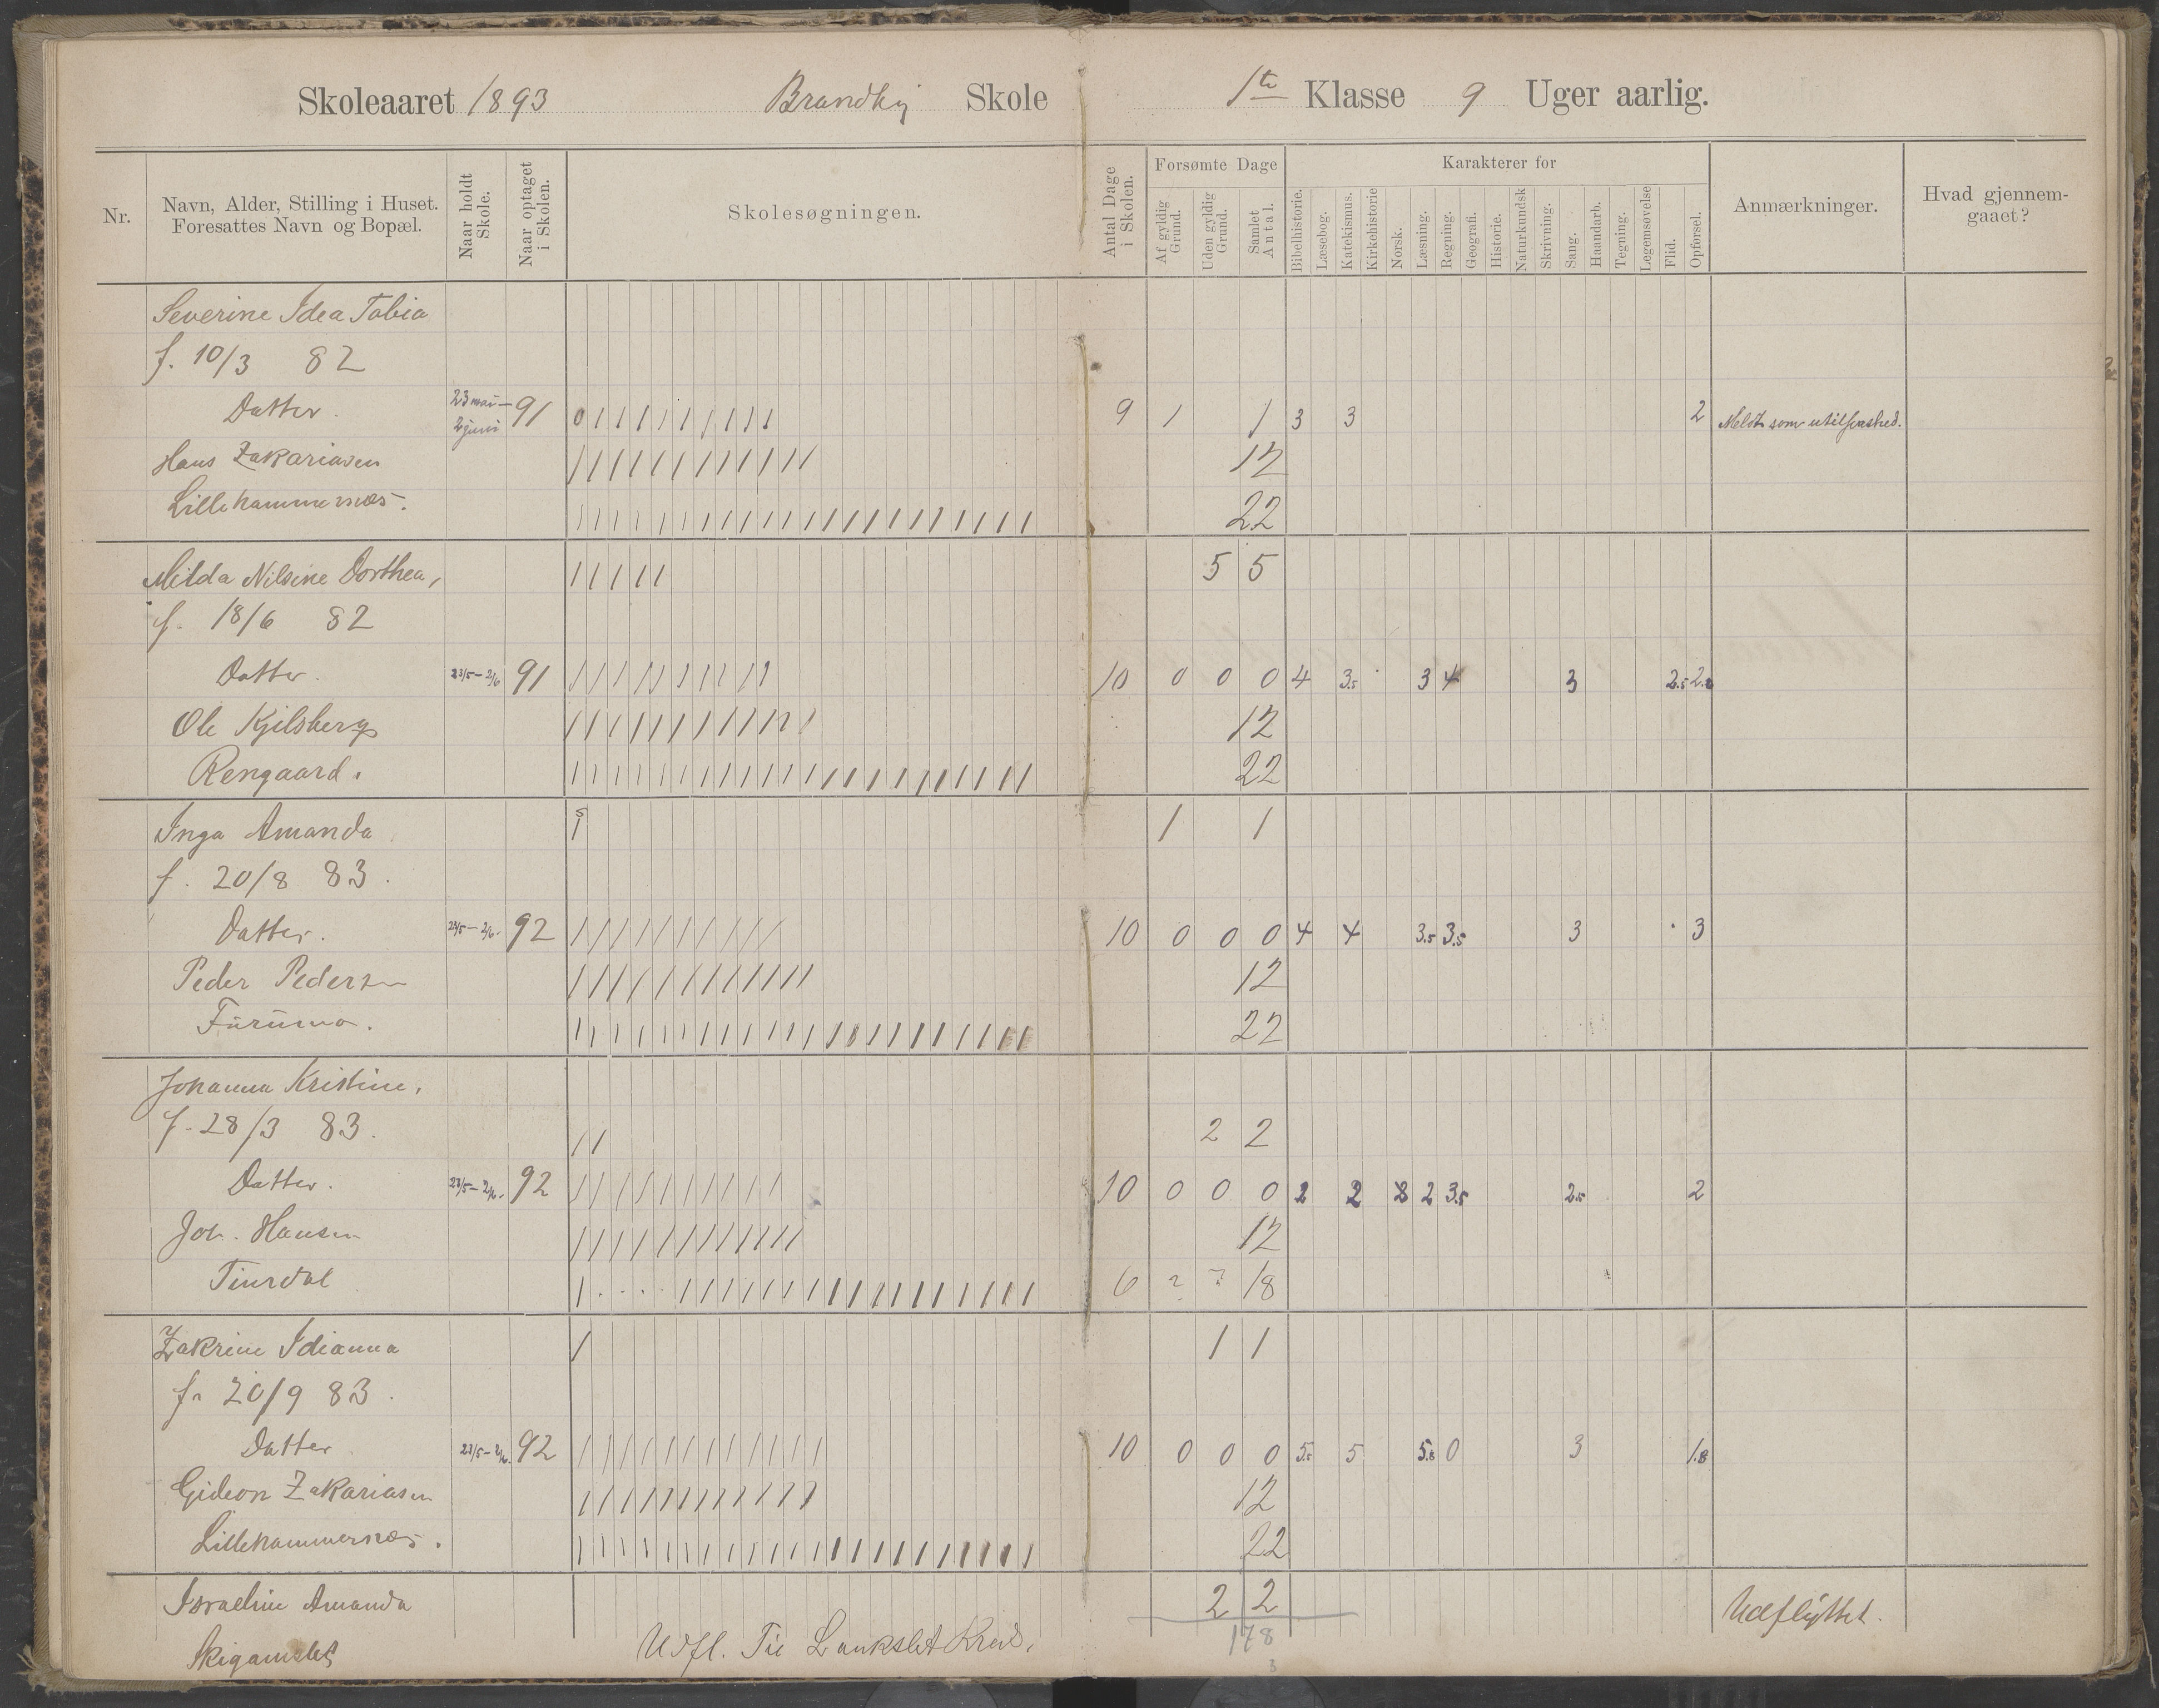 Skoleaaret 1893 Skole 1te Klasse 9 Uger aarlig.
Nr.
Navn, Alder, Stilling i Huset.
Foresattes Navn og Bopæl.
Naar holdt
Skole.
Naar optaget
i Skolen.
Skolesøgningen.
Antal Dage
i Skolen.
Forsømte Dage
Af gyldig
Grund.
Uden gyldig
Grund.
Samlet
Antal.
Karakterer for
Bibelhistorie.
Læsebog.
Katekismus.
Kirkehistorie
Norsk.
Læsning.
Regning.
Geografi.
Historie.
Naturkundsk
Skrivning.
Sang.
Haandarb.
Tegning.
Legemsøvelse
Flid.
Opførsel.
Anmærkninger.
Hvad gjennem-
gaaet?
Severine Idea Tobia
f. 10/3 82
Datter. 23 mai – 2 juni 91 9 1 1 3 3 2 Meldt som
Hans Zakariasen 12
Lillehammernæs. 22
Milda Nilsine Dorthea, 5 5
f. 18/6 82
Datter. 23/5 – 2/6 91 10 0 0 0 4 3.5 3 4 3 2.5
Ole Kjilsberg 12
Rengaard. 22
Inga Amanda s 1 1
f. 20/8 83.
Datter. 23/5 – 2/6. 92 10 0 0 0 4 4 3.5 3.5 3 3
Peder Pedersen 12
Furumo. 22
Johanna Kristine,
f. 28/3 83. 2 2
Datter. 23/5 – 2/6. 92 10 0 0 0 2 2 2 3.5 2.5 2
Joh. Hansen 12
6 ? ? 18
Zakrine Idianna 1 1
f. 20/9 83.
Datter 23/5 – 2/6. 92 10 0 0 0 5.5 5 0 3 1.8
Gideon Zakariasen 12
Lillehammernæs. 22
Israeline Amanda 2 2 Udflyttet.
Udfl. Til 178
3